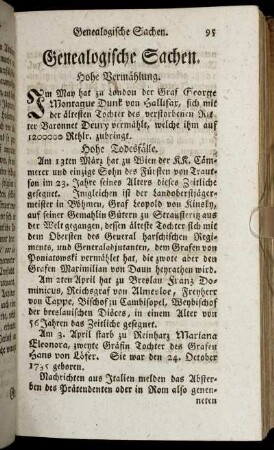 Genealogische Sachen. 95
Genealogische Sachen.
Hohe Vermählung.
Im May hat zu London der Graf George
Montague Dunk von Hallifax, sich mit
der ältesten Tochter des verstorbenen Rit-
ter Baronnet Deury vermählt, welche ihm auf
1200000 Rthlr. zubringt.
Hohe Todesfälle.
Am 13ten März hat zu Wien der KK. Cäm-
merer und einzige Sohn des Fürsten von Traut-
son im 23. Jahre seines Alters dieses Zeitliche
gesegnet. Imgleichen ist der Landoberstjäger-
meister in Böhmen, Graf Leopold von Kinsky,
auf seiner Gemahlin Gütern zu Strausteriz aus
der Welt gegangen, dessen älteste Tochter sich mit
dem Obersten des General harschischen Regi-
ments, und Generaladjutanten, dem Grafen von
Poniatowski vermählet hat, die zwote aber den
Grafen Maximilian von Daun heyrathen wird.
Am 2ten April hat zu Breslau Franz Do-
minicus, Reichsgraf von Almesloe, Freyherr
von Tappe, Bischof zu Cambisopel, Weybischof
der breslauischen Diöces, in einem Alter von
56 Jahren das Zeitliche gesegnet.
Am 3. April starb zu Reinharz Mariana
Eleonora, zweyte Gräfin Tochter des Grafen
Hans von Löser. Sie war den 24. October
1735 geboren.
Nachrichten aus Italien melden das Abster-
ben des Prätendenten oder in Rom also genen-
neten